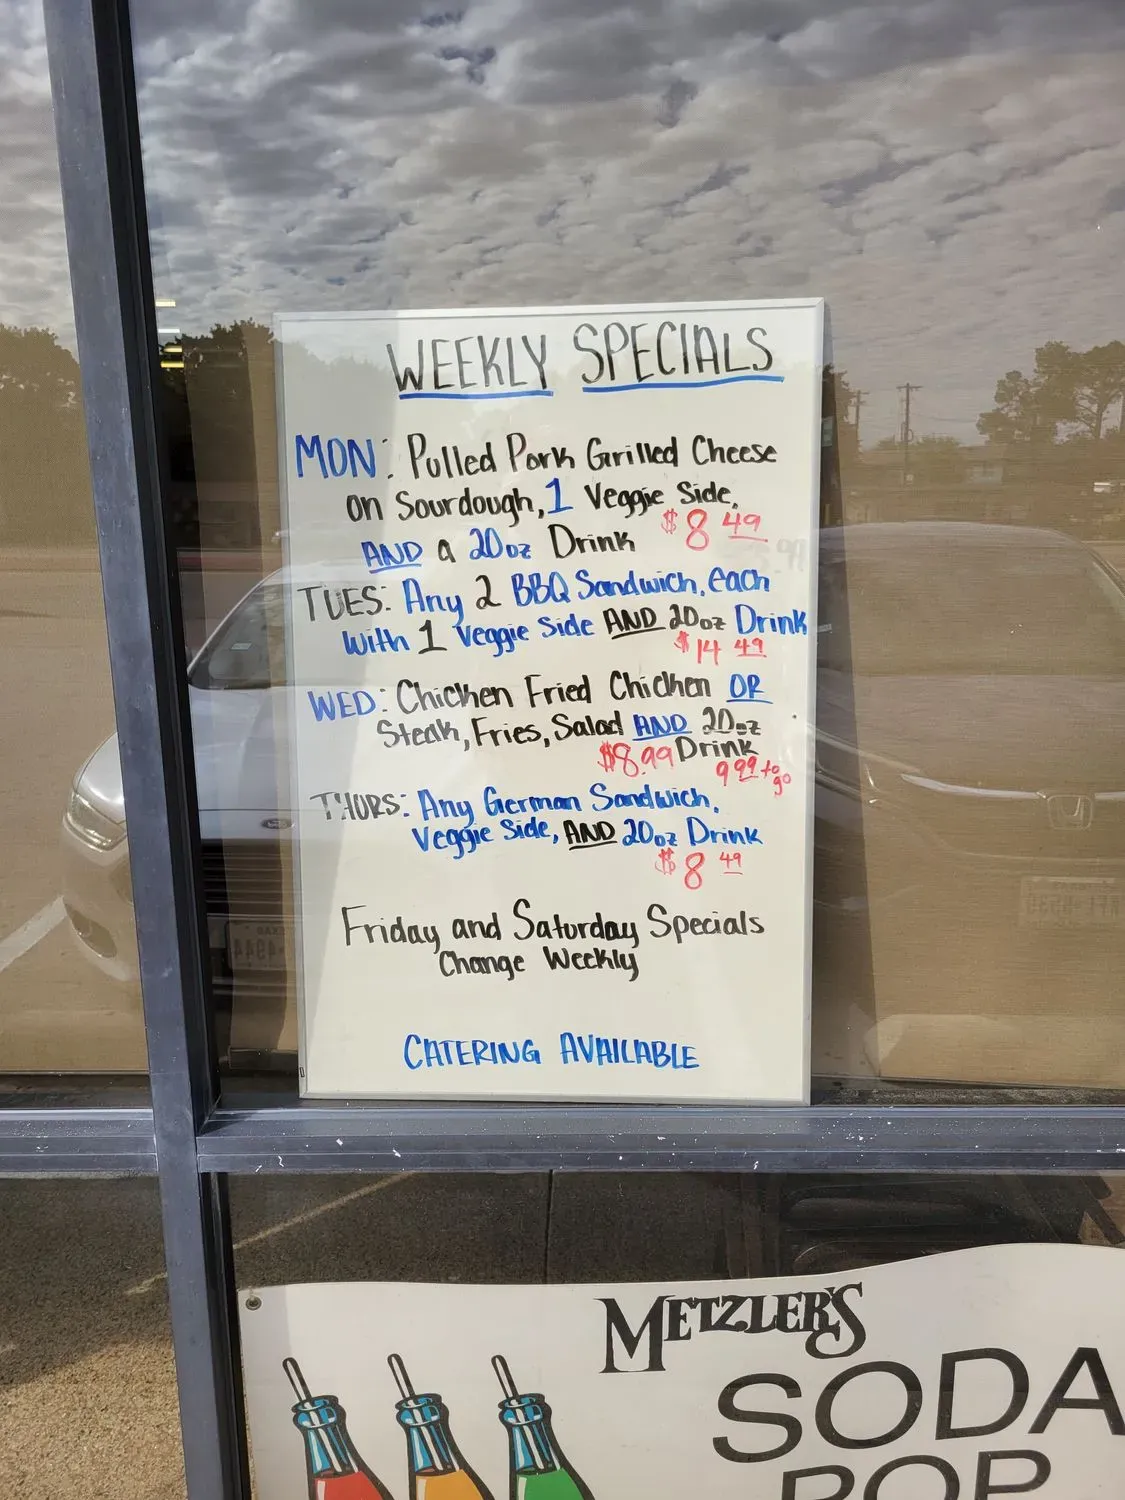 WEEKLY SPECIALS
MON: Pulled Pork Grilled Cheese
on Sourdough, 1 Veggie Side,
AND a 20oz Drink $8.49
TUES: Any 2 BBQ Sandwich, each
with 1 Veggie Side AND 20oz Drink
$14.49
WED: Chicken Fried Chicken OR
Steak, Fries, Salad AND 20oz
$8.99 Drink 9.99 to go
THURS: Any German Sandwich,
Veggie Side, AND 20oz Drink
$8.49
Friday and Saturday Specials
Change Weekly
CATERING AVAILABLE
METZLER'S
SODA
POP